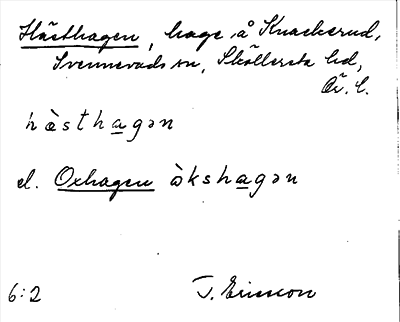 Hästhagen, hage å Knackerud,
Svennevads sn, Sköllersta hd,
Ör. l.
hæ̀sthagən
el. Oxhagen ɷ̀kshagən
6:2 T. Ericsson